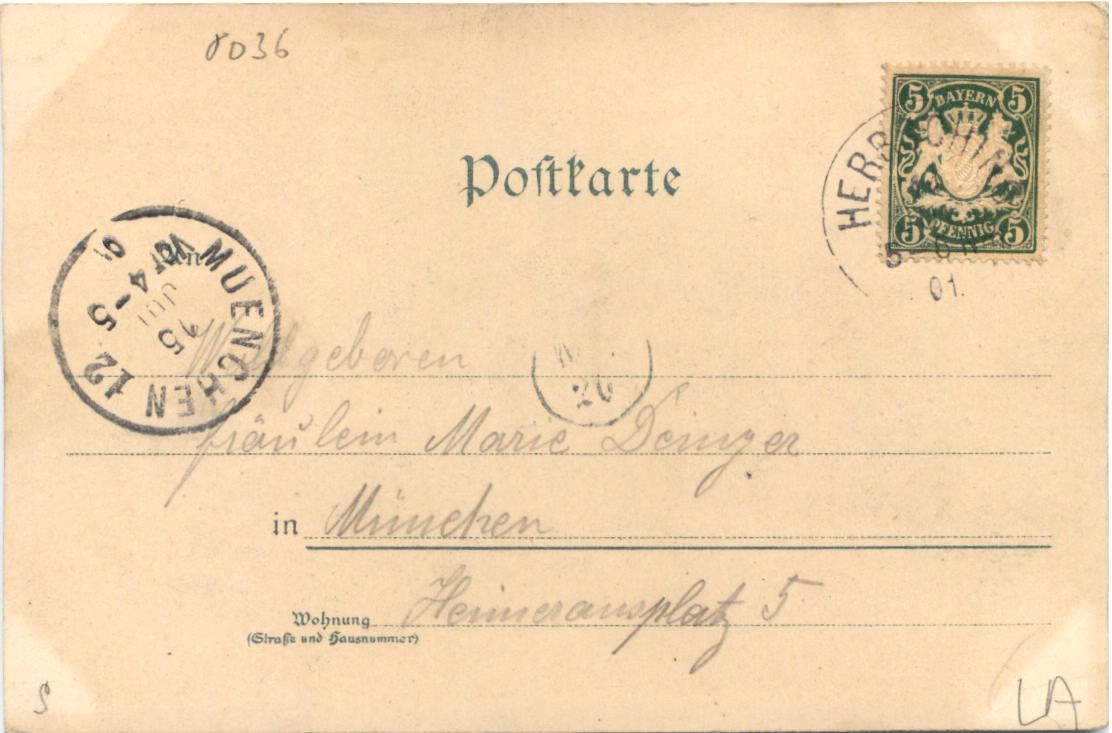 8036
Postkarte
BAYERN
5 5
PFENNIG
5 5
HERRSCHING
5
01.
MUENCHEN 12
15 JUN
4-5
01
An
Wohlgeboren
26
Fräulein Marie Deinger
in München
Heimeransplatz 5
Wohnung
(Straße und Hausnummer)
S
LA